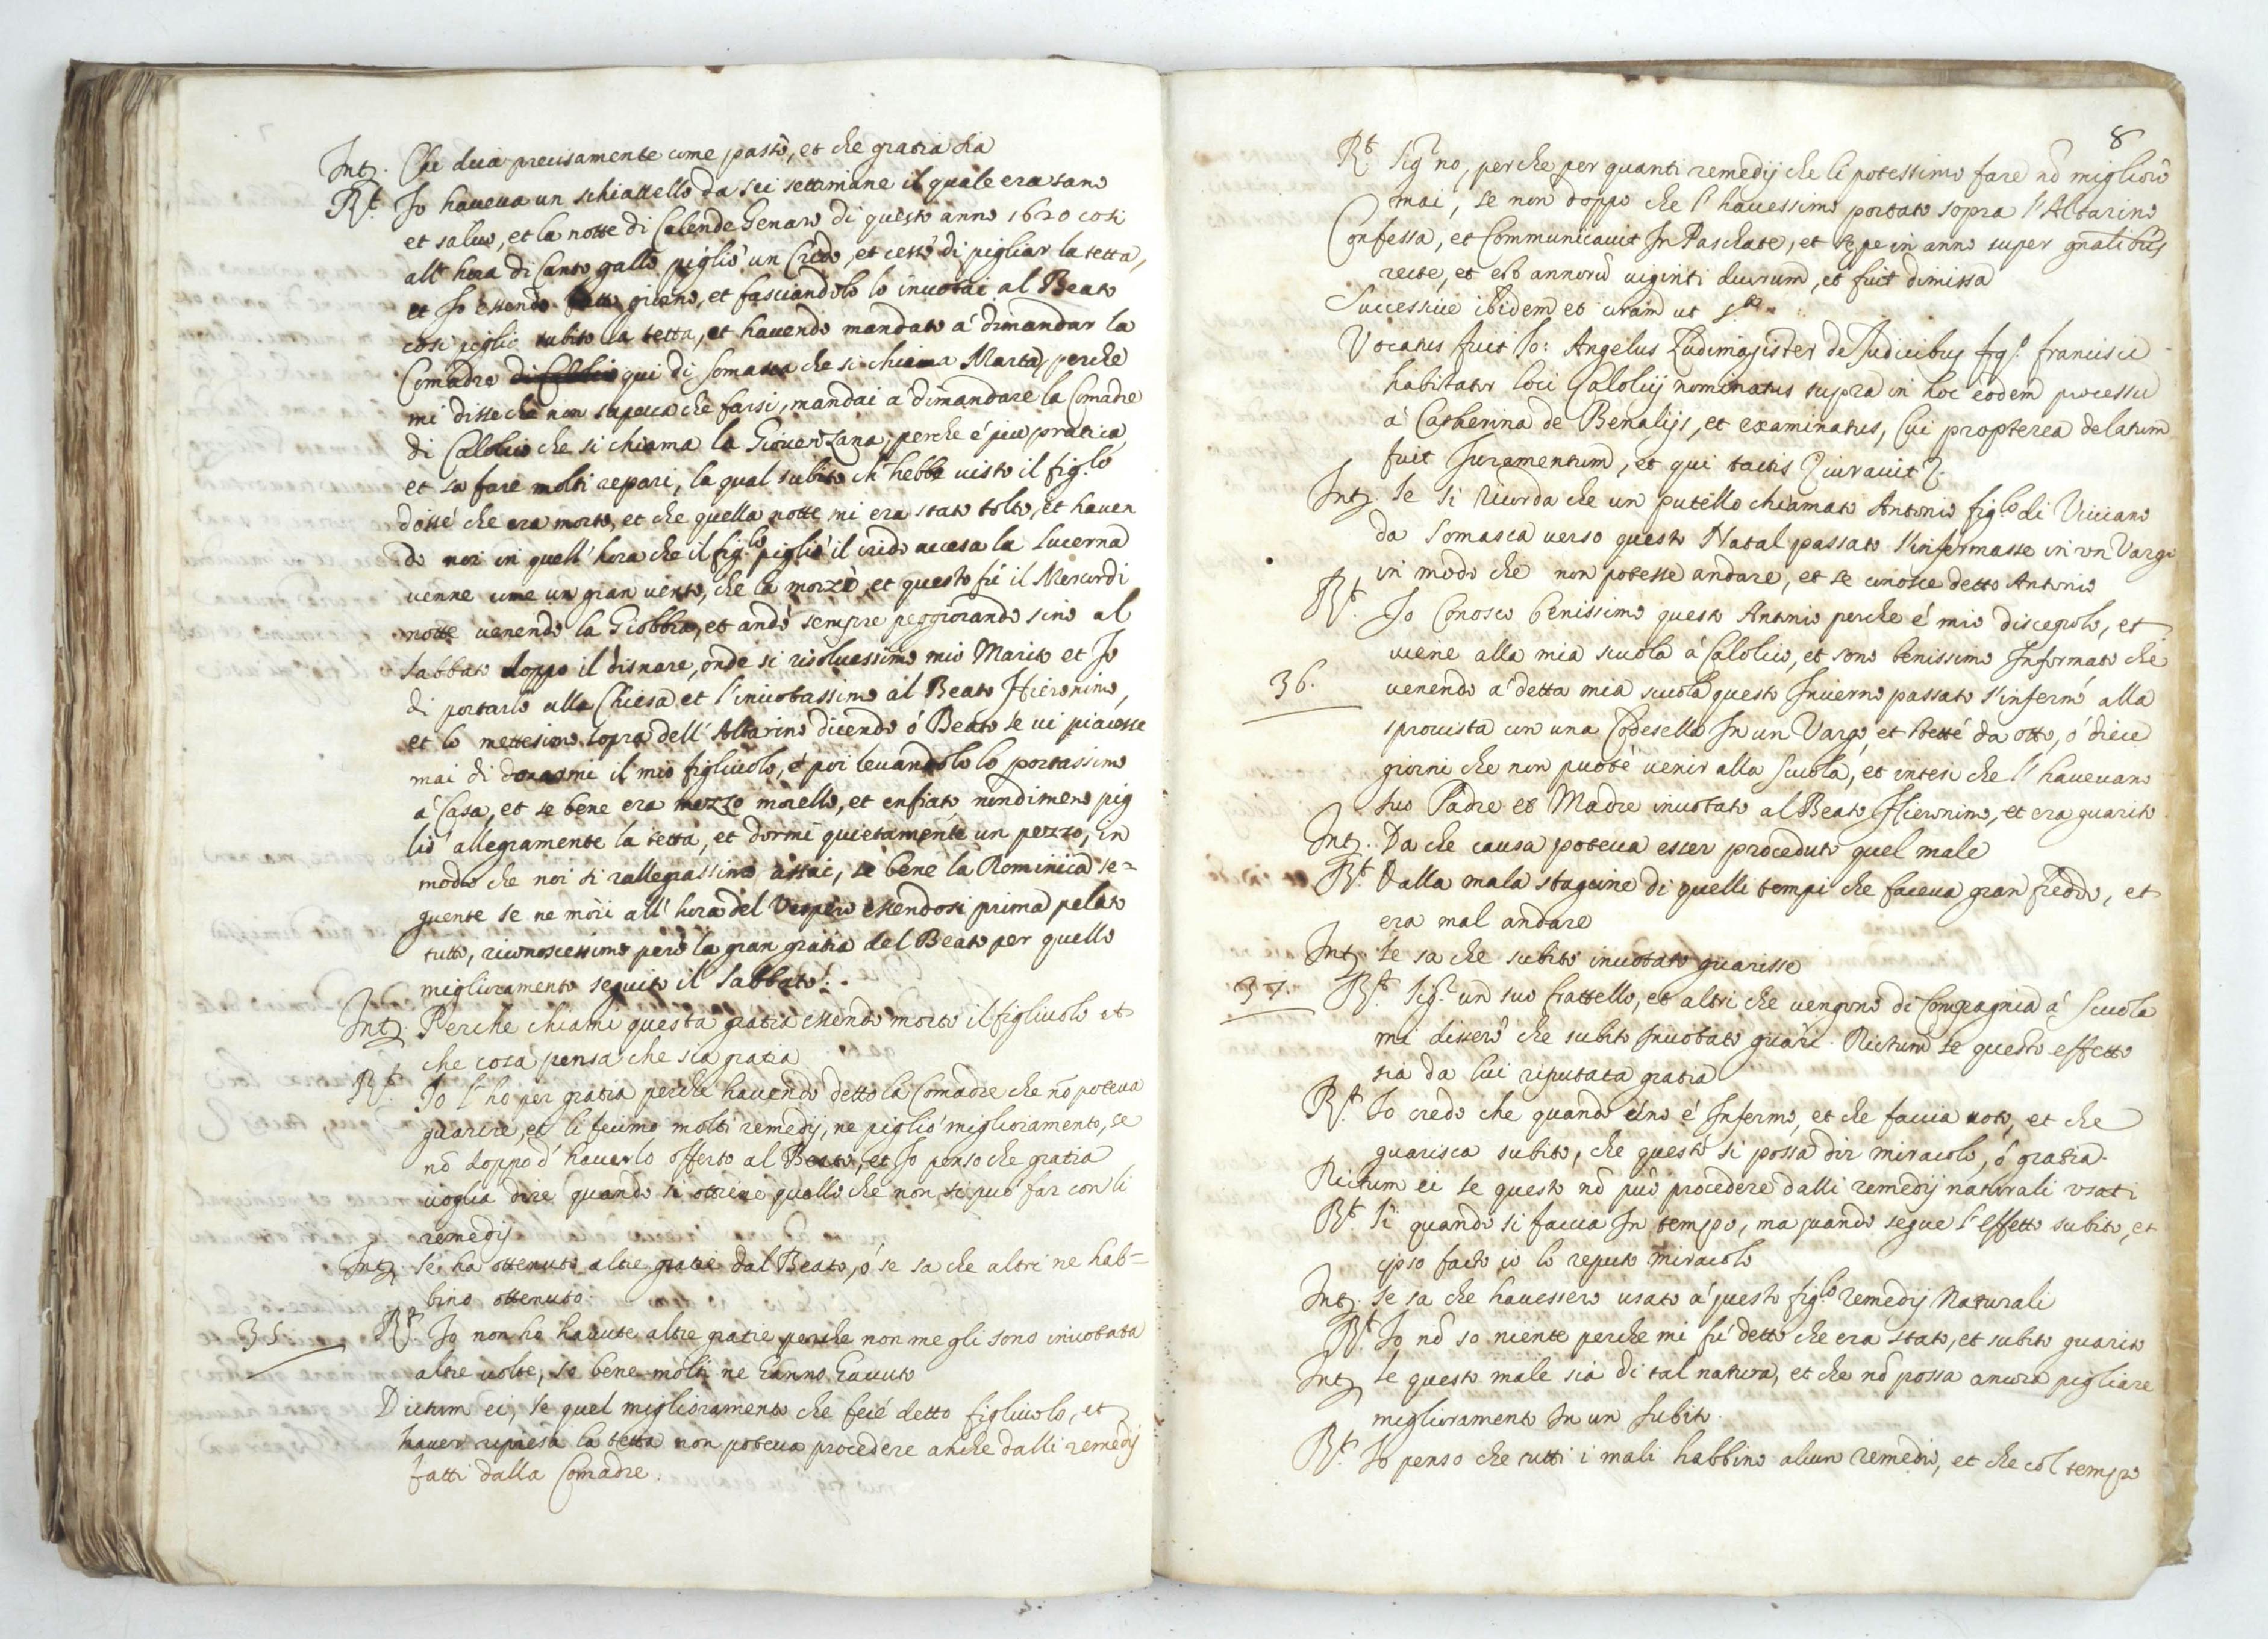 Intᵗ. Che dica precisamente come passò, et che gratia sia
Rᵗ. Io haveva un schiattello da sei settimane il quale era sano
et salvo, et la notte di Calende Genaro di questo anno 1620 così
all' hora di Canto gallo pigliò un Crido, et cessò di pigliar la tetta,
et Io essendo fatto giorno, et fasciandolo lo invotai al Beato
così pigliò subito la tetta, et havendo mandato à dimandar la
Comadre di Calolcio qui di Somasca che si chiama Marta, perche
mi disse che non sapeva che farsi, mandai à dimandare la Comadre
di Calolcio che si chiama la Giovenzana, perche è più pratica,
et sa fare molti repari, la qual subito ch' hebbe visto il fig.lo
disse che era morto, et che quella notte mi era stato tolto, et haven
do noi in quell' hora che il fig.lo pigliò il crido accesa la Lucerna
venne come un gran vento, che la morzò, et questo fù il Mercordi
notte venendo la Giobbia, et andò sempre peggiorando sino al
sabbato doppo il disnare, onde si risolvessimo mio Marito et Io
di portarlo alla Chiesa et l'invotassimo al Beato Hieronimo,
et lo mettessimo sopra dell' Altarino dicendo ò Beato se vi piacesse
mai di donarmi il mio figliuolo, è poi levandolo lo portassimo
à Casa, et se bene era mezzo morello, et enfiato nondimeno pig
liò allegramente la tetta, et dormì quietamente un pezzo, in
modo che noi si rallegrassimo assai, se bene la Dominica se=
guente se ne morì all' hora del Vespero essendosi prima pelato
tutto, riconoscessimo però la gran gratia del Beato per quello
miglioramento seguito il sabbato.
Intᵗ. Perche chiami questa gratia essendo morto il figliuolo et
che cosa pensa che sia gratia
Rᵗ. Io l' ho per gratia perche havendo detto la Comadre che nō poteva
guarire, et li fecimo molti remedij, ne pigliò miglioramento, se
nō doppo d' haverlo offerto al Beato, et Io penso che gratia
voglia dire quando si ottiene quello che non si può far con li
remedij
Intᵗ. se ha ottenuto altre gratie dal Beato, ò se sa che altri ne hab=
bino ottenuto.
35. Rᵗ. Io non ho havute altre gratie perche non me gli sono invotata
altre volte, so bene molti ne hanno havuto
Dictum ei, se quel miglioramento che fece detto figliuolo, et
haver ripresa la tetta non poteva procedere anche dalli remedij
fatti dalla Comadre.
8
Rᵗ. Sigʳ no, perche per quanti remedij che li potessimo fare nō migliorò
mai, se non doppo che l' havessimo portato sopra l'Altarino
Confessa, et Communicavit In Paschate, et sępe in anno super gnalibus
recte, et est annorū viginti duorum, et fuit dimissa
Successive ibidem et coram ut sᵃ
Vocatus fuit Io: Angelus Ludimagister de Judicibus fq.ᵐ francisci
habitator loci Calolcij nominatus supra in hoc eodem processu
à Catherina de Benalijs, et examinatus, Cui propterea delatum
fuit Juramentum, et qui tactis & iuravit &.
Intᵗ. se si ricorda che un putello chiamato Antonio fig.lo di Viviano
da Somasca verso questo Natal passato s'infermasse in un Vargo
in modo che non potesse andare, et se conosce detto Antonio
Rᵗ. Io Conosco benissimo questo Antonio perche é mio discepolo, et
viene alla mia scuola à Calolcio, et sono benissimo Informato che
36. venendo a detta mia scuola questo Inverno passato s'infermò alla
sprovista con una Codesella In un Vargo, et stette da otto, ó diece
giorni che non puoté venir alla scuola, et intesi che l' havevano
suo Padre et Madre invotato al Beato Hieronimo, et era guarito
Intᵗ. Da che causa poteva esser proceduto quel male
Rᵗ. Dalla mala staggione di quelli tempi che faceva gran freddo, et
era mal andare
Intᵗ. se sa che subito invotato guarisse
37. Rᵗ. Sigʳ un suo frattello, et altri che vengono di Compagnia á Scuola
mi dissero che subito Invotato guarì. Dictum se questo effetto
sia da lui riputata gratia
Rᵗ. Io credo che quando uno é Infermo, et che faccia voto, et che
guarisca subito, che questo si possa dir miracolo, ó gratia.
Dictum ei se questo nō può procedere dalli remedij naturali usati
Rᵗ. Si quando si faccia In tempo, ma quando segue l'effetto subito, et
ipso facto io lo reputo miracolo
Intᵗ. se sa che havessero usato á questo fig.lo remedij Naturali
Rᵗ. Io nō so niente perche mi fú detto che era stato, et subito guarito
Intᵗ. se questo male sia di tal natura, et che nō possa ancora pigliare
miglioramento In un subito.
Rᵗ. Io penso che tutti i mali habbino alcun remedio, et che col tempo